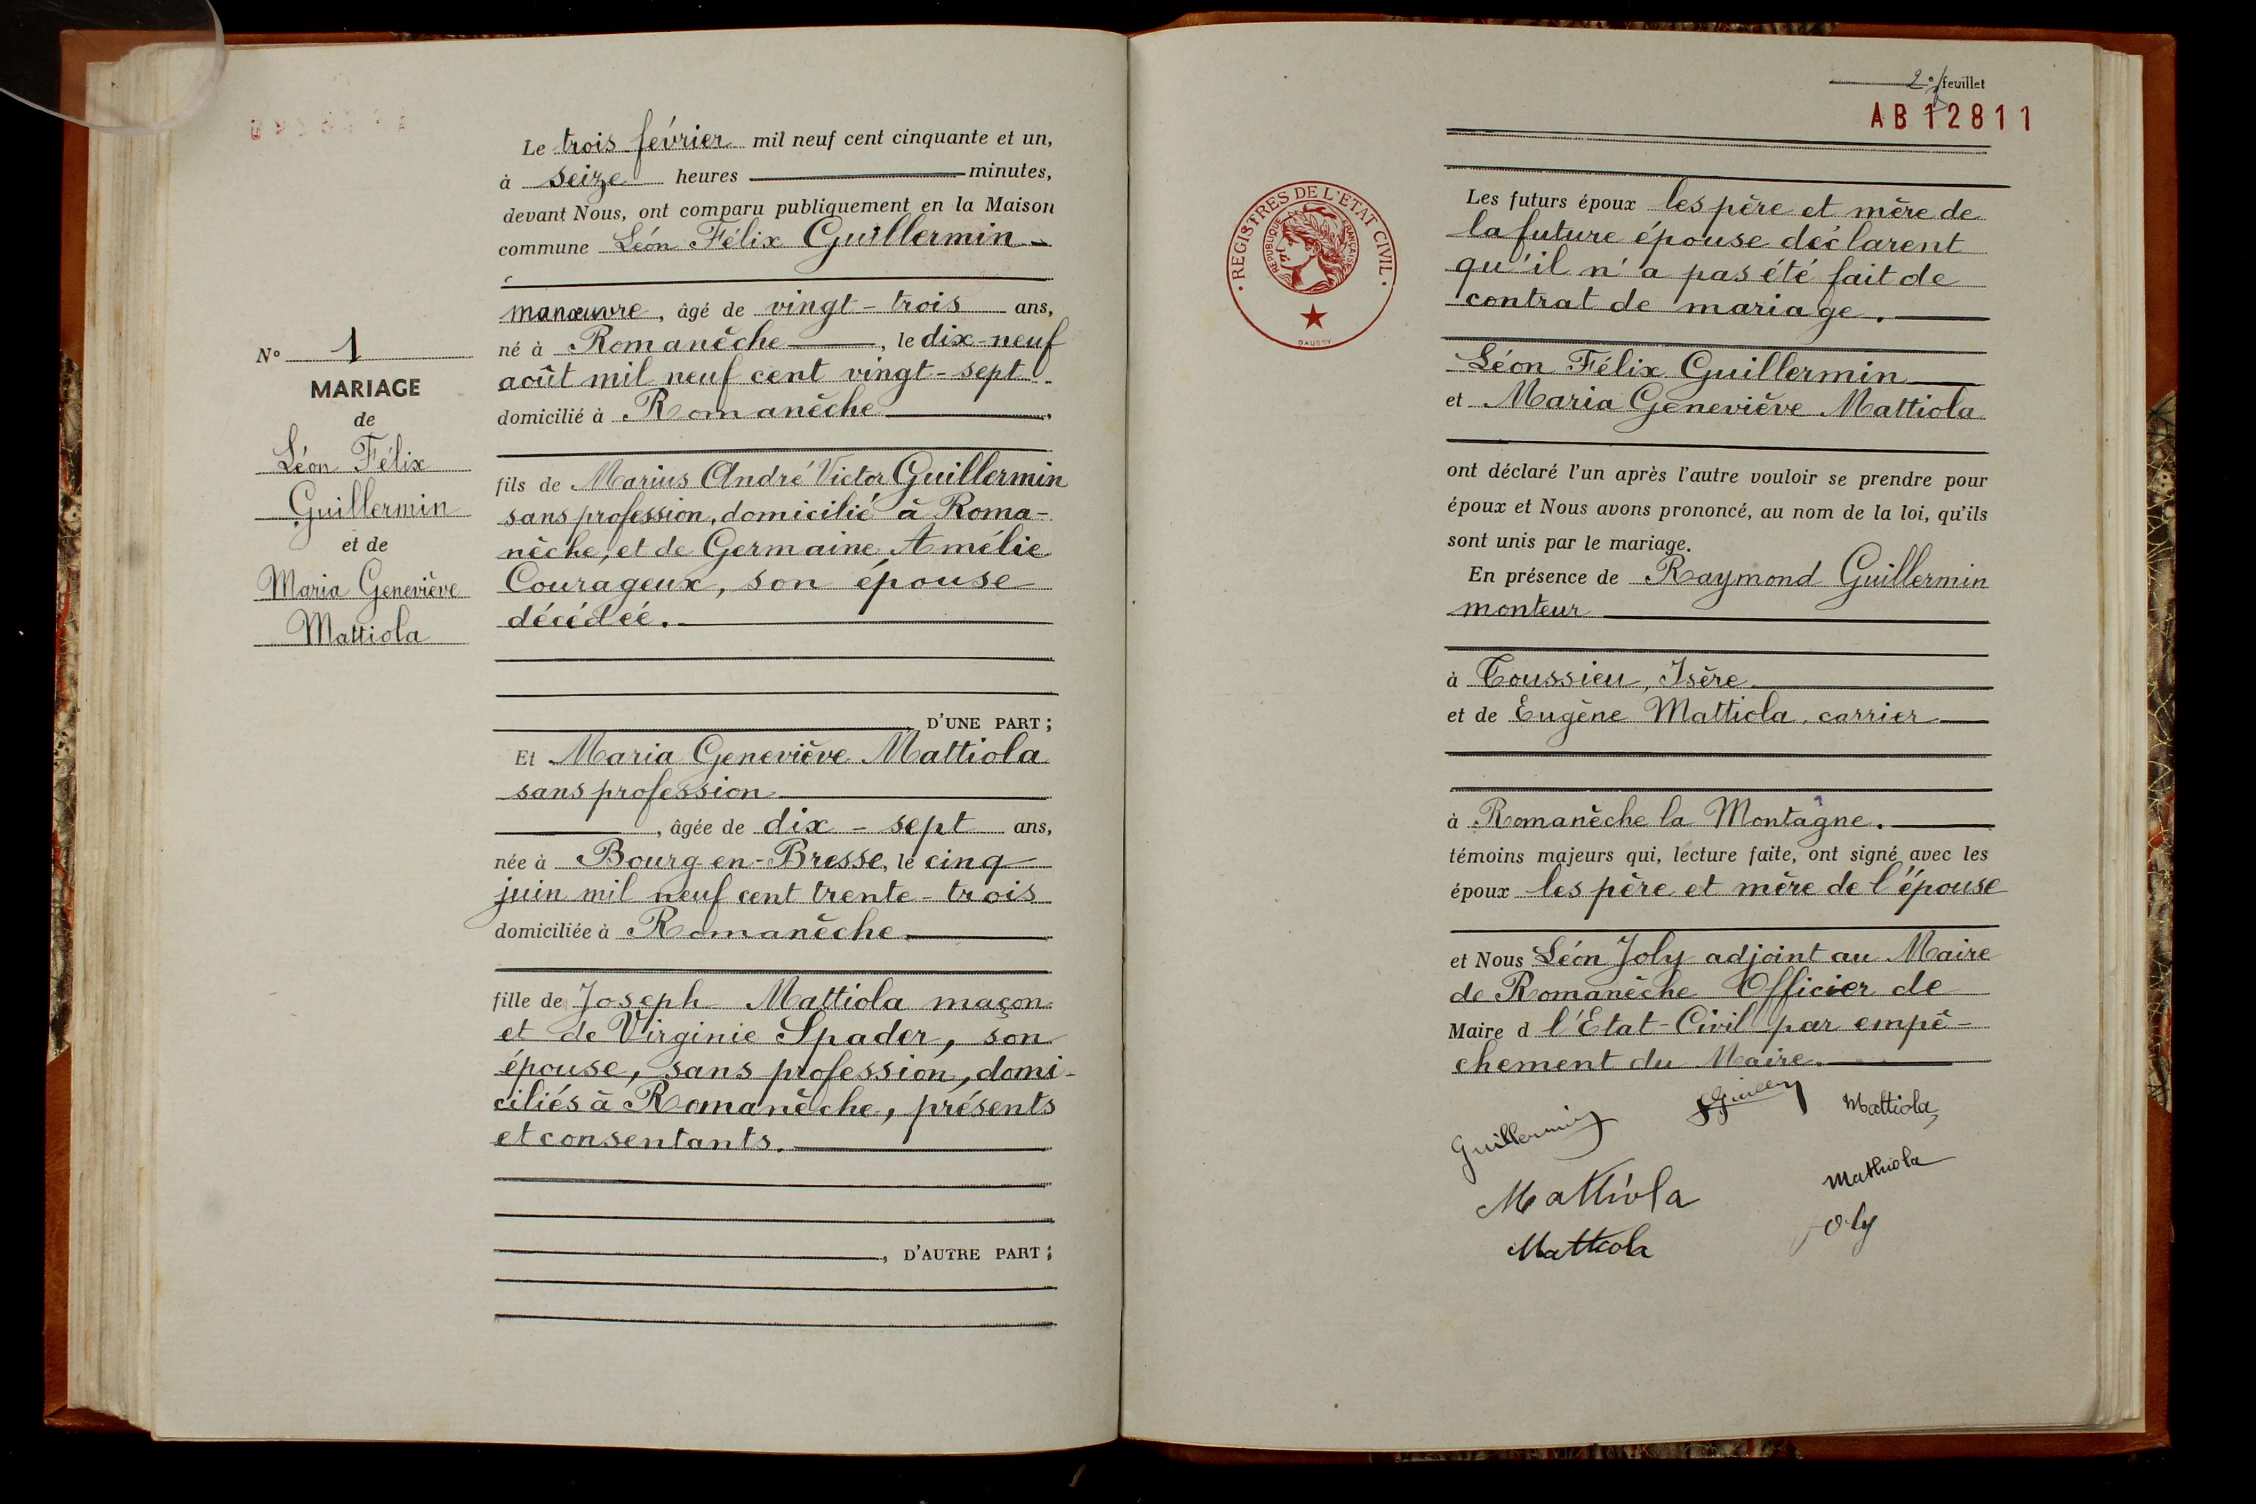 Le trois février mil neuf cent cinquante et un,
à seize heures minutes,
devant Nous, ont comparu publiquement en la Maison
commune Léon Félix Guillermin
manœuvre, âgé de vingt-trois ans,
né à Romanèche, le dix-neuf
août mil neuf cent vingt-sept
domicilié à Romanèche
N° 1
MARIAGE
de
Léon Félix
Guillermin
et de
Maria Geneviève
Mattiola
fils de Marius André Victor Guillermin
sans profession, domicilié à Roma-
nèche, et de Germaine Amélie
Courageux, son épouse
décédée.
D'UNE PART ;
Et Maria Geneviève Mattiola
sans profession
, âgée de dix-sept ans,
née à Bourg-en-Bresse, le cinq
juin mil neuf cent trente-trois
domiciliée à Romanèche.
fille de Joseph Mattiola maçon
et de Virginie Spader, son
épouse, sans profession, domi-
ciliés à Romanèche, présents
et consentants.
, D'AUTRE PART ;
2e feuillet
AB 12811
REGISTRES DE L'ETAT CIVIL
REPUBLIQUE FRANÇAISE
DAUSSY
Les futurs époux les père et mère de
la future épouse déclarent
qu'il n'a pas été fait de
contrat de mariage.
Léon Félix Guillermin
et Maria Geneviève Mattiola
ont déclaré l'un après l'autre vouloir se prendre pour
époux et Nous avons prononcé, au nom de la loi, qu'ils
sont unis par le mariage.
En présence de Raymond Guillermin
monteur
à Toussieu, Isère
et de Eugène Mattiola, carrier
à Romanèche la Montagne.
témoins majeurs qui, lecture faite, ont signé avec les
époux les père et mère de l'épouse
et Nous Léon Joly adjoint au Maire
de Romanèche Officier de
Maire d l'Etat-Civil par empê-
chement du Maire.
Guillermin
Mattiola
Mattiola
Mathiola
Mattiola
Joly